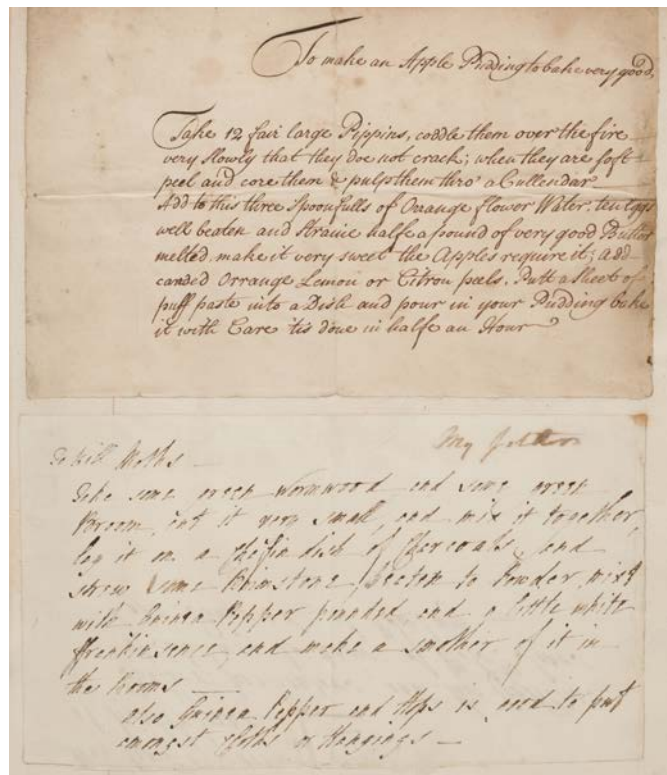 To make an Apple Pudding to bake very good.
Take 12 fair large Pippins, coddle them over the fire
very slowly that they doe not crack; when they are soft
peel and core them & pulp them thro' a Cullendar
Add to this three Spoonfulls of Orrange flower Water. ten Eggs
well beaten and Straine halfe a pound of very good Butter
melted. make it very sweet the Apples require it; add
canded Orrange Lemon or Citron peels. Putt a sheet of
puff paste into a Dish and pour in your Pudding bake
it with Care 'tis done in halfe an Hour
My
To Kill Moths
Take some green Wormwood and some green
Broom, cut it very small, and mix it together,
lay it on a Chafin dish of Charcoals, and
strew some Brimstone, beaten to Powder, mixt
with Guinea Pepper pounded and a little white
ffrankinsence, and make a smother of it in
the Rooms
also Guinea Pepper and Hops is good to put
amongst Cloths or Hangings